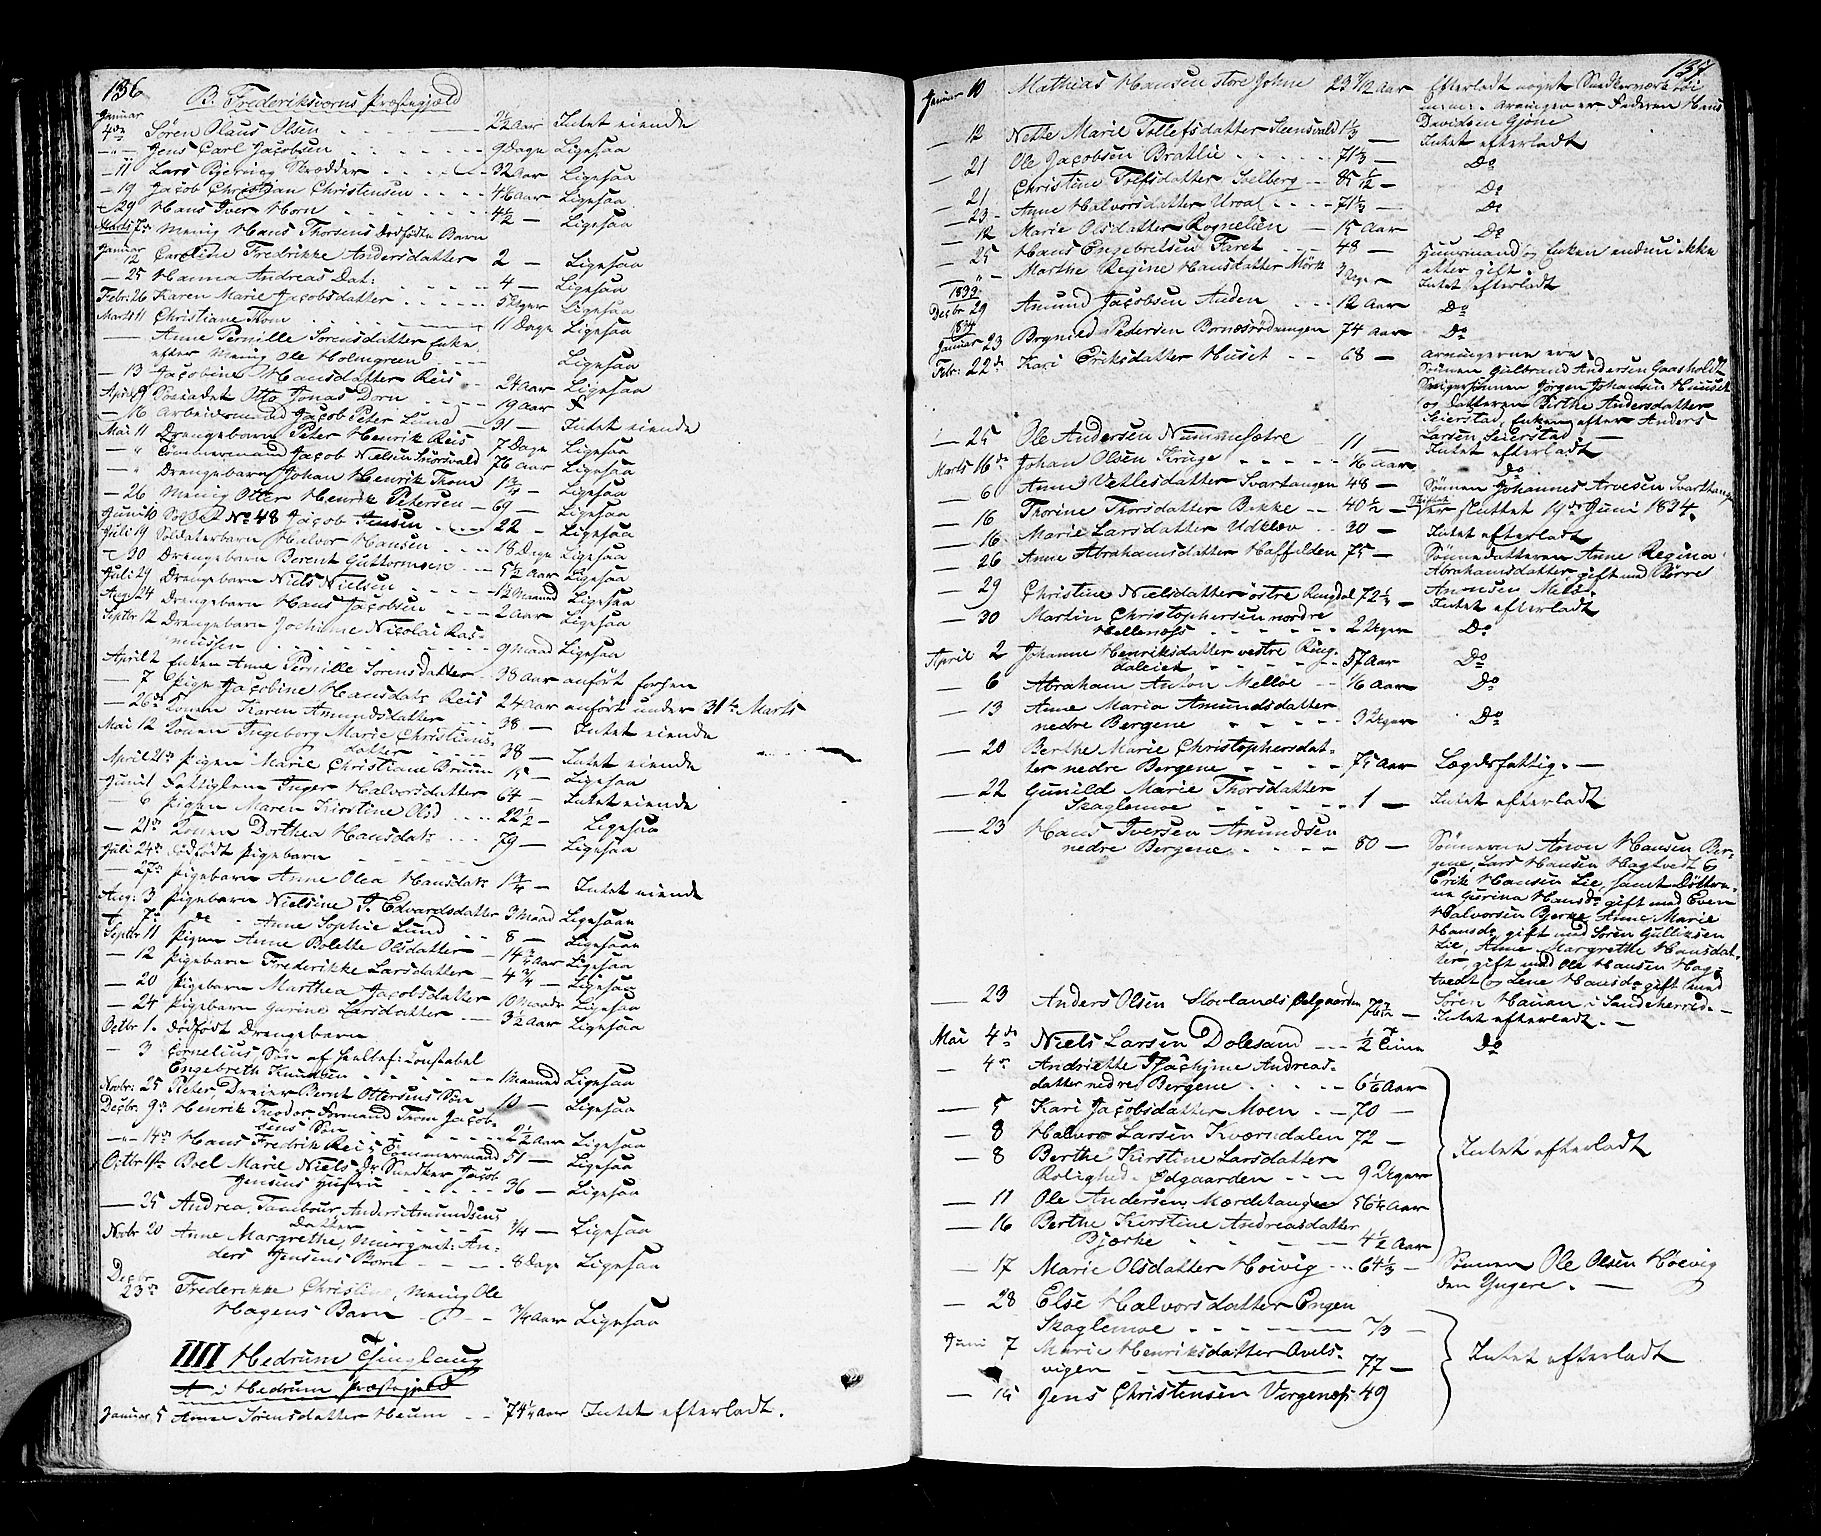 136
B. Frederiksværns Præstegjæld
Januar
4de Sören Claus Olsen 2½ Aar Intet eiende
Jens Carl Jacobsen 9 Dage Ligesaa
11 Lars Bjerning Skrædder 32 Aar Ligesaa
19 Jacob Christian Christensen Aar Ligesaa
29 Hans Iver Horn 4½ — Ligesaa
Marts Menig Hans Thorsens dödfödte Barn
Januar
12 Caroline Fredrikke Andersdatter 2 — Ligesaa
25 Hanna Andreas Dat: 4 — Ligesaa
Febr: 26 Karen Marie Jacobsdatter 5 Uger Ligesaa
Marts 11 Christiane Thom 11 Dage Ligesaa
Anne Pernille Sörensdatter Enke
efter Menig Ole Holmgreen Ligesaa
13 Jacobine Hansdatter Reis 24 Aar Ligesaa
April 9 Otto Jonas Dorn 19 Aar
16 Arbeidsmand Jacob Peter Lund 31 — Intet eiende
Mai 11 Drengebarn Peter Henrik Reis 7 Dage Ligesaa
" Tömmermand Jacob Nielsen 76 Aar Ligesaa
" Drengebarn Johan Henrik Thom 1¾ — Ligesaa
26 Menig Otter Henrik Petersen 69 — Ligesaa
Juni No 48 Jacob Jensen 22 — Ligesaa
Juli 19 Soldaterbarn Halvor Hansen 18 Dage Ligesaa
30 Drengebarn Berent Guttormsen 5½ Aar Ligesaa
Juli 29 Drengebarn Niels Nielsen 12 Maaned Ligesaa
Aug: 24 Drengebarn Hans Jacobsen 2 Aar Ligesaa
Septbr 12 Drengebarn Jochime Nicolai Ras-
mussen 9 Maad Ligesaa
April 2 Enken Anne Pernille Sörensdatter 38 Aar anfört forhen
7 Pige Jacobine Hansdatr Reis 24 Aar anfört under 31te Marts
26de Konen Karen Amundsdatter 38 — Intet eiende
Mai 12 Konen Ingeborg Marie Christians-
datter 38 — Intet eiende
April 21de Pigen Marie Christiane Bruun 15 — Ligesaa
Juni 1 Fattiglem Inger Halvorsdatter 64 — Intet eiende
6 Pigen Maren Kirstine Olsd 22½ — Ligesaa
21de Konen Dorthea Hansdatr 79 — Ligesaa
Juli 24de dödfödt Pigebarn
27de Pigebarn Anne Olea Hansdatr 1¾ — Intet eiende
Aug: 3 Pigebarn Nielsine P. Edvardsdatter 3 Maad Ligesaa
7de do Anne Sophie Lund 8 — Ligesaa
Septbr 11 Pigen Anne Bolette Olsdatter Aar Ligesaa
12 Pigebarn Frederikke Larsdatter Ligesaa
20 Pigebarn Marthea Jacobsdatter 10 Maadr Ligesaa
24 Pigebarn Gurine Larsdatter 3½ Aar Ligesaa
Octbr 1. dödfödt Drengebarn
3 Cornelius, Sön af Constabel
Engebreth Knudsen 1 Maaned Ligesaa
Novbr: 25 Peter, Dreier Bernt Ottersens Sön 10 — Ligesaa
Decbr. 9de Henrik Theodor Formand Thom Jacob-
sens Sön 2½ Aar Ligesaa
14de Hans Fredrik Reis Tömmermand 51 — Ligesaa
Octbr Boel Marie Niels Dr Snedker Jacob
Jensens Hustru 36 — Ligesaa
25 Andrea, Tambour Anders Amundsens
Datter ¼ — Ligesaa
Novbr 20 Anne Margrethe, An-
ders Jensens Barn 8 Dage Ligesaa
Decbr
23de Frederikke Christine, Menig Ole
Hagens Barn ¾ Aar Ligesaa
IIII Hedrum Thinglaug
A i Hedrum Præstegjeld
Januar 5 Anne Sörensdatter Haum 74¼ Aar Intet efterladt.
137
Januar 10 Mathias Hansen store Johne 23 Aar Efterladt noget Snedkerværktöi
m: m: Arvingen er Faderen Hans
Davidsen Gjöne
12 Nette Marie Tollefsdatter Steensvald 1⅓ — Intet efterladt
21 Ole Jacobsen Bratlie 71⅓ — Do
21 Christine Tolfsdatter Solberg 85 — Do
23 Anne Halvorsdatter Uroal 71⅓ — Do
12 Marie Olsdatter Rognelien 15 Aar Do
25 Hans Engebretsen Faret 48 — Huusmand og Enken endnu ikke
efter gift.
" Marthe Regine Hansdatter Mörk 3 Uger Intet efterladt
1833
Decbr 29 Amund Jacobsen Anden 12 Aar Do
1834
Januar 23 Brynild Pedersen Bornesrödningen 74 Aar Do
Febr: 22de Kari Eriksdatter Huset 68 — Arvingerne ere:
Sönnen Gulbrand Andersen Gaasholdt
Svigersönnen Jörgen Johansen Huuset
og Datteren Birthe Andersdatter
Seierstad, Enken efter Anders
Larsen Seierstad
25 Ole Andersen Nummesætre 11 — Intet efterladt
Marts 16de Johan Olsen Kruge Aar Do
6 Anne Vetlesdatter Svartangen 48 — Sönnen Johannes Arvesen Svarthange
16 Thorine Thorsdatter Bekke 40½ — Skiftet er sluttet 19de Juni 1834.
16 Marie Larsdatter Udklev 30 — Intet efterladt
26 Anne Abrahamsdatter Haffelden 75 — Sönnedatteren Anne Regina
Abrahamsdatter gift med Börre
Anonsen Mels.
29 Christine Nielsdatter östre Ringdal 72⅓ — Intet efterladt
30 Martin Christophersen nordre
Hellenæss 2 Uger Do
April 2 Johanne Henriksdatter vestre Ring-
daleiet 57 Aar Do
6 Abraham Anton Melloe ⅙ Aar Do
13 Anne Maria Amundsdatter
nedre Bergene 3 Uger Do
20 Berthe Marie Christophersdat-
ter nedre Bergene 75 Aar Lægdsfattig. —
22 Gunild Marie Thorsdatter
Skaglemoe 1 — Intet efterladt
23 Hans Iversen Amundsen
nedre Bergene 80 — Sönnerne Anon Hansen Ber-
gene, Lars Hansen Hagtvedt &
Erik Hansen Lie, samt Döttre-
ne Gurina Hansdr gift med Even
Halvorsen Bjerke, Anne Marie
Hansdr gift med Sören Gulliksen
Lie, Anne Margrethe Hansdat-
ter, gift med Ole Hansen Hag-
tvedt og Lene Hansdr gift med
Sören Hauan i Sandeherred. —
23 Anders Olsen Stovlands Ödegaarden 76½ — Intet efterladt. —
Mai 4de Niels Larsen Dolesand ½ Time Do
4de Andrikke Jachime Andreas-
datter nedre Bergene Aar
5 Kari Jacobsdatter Moen 70 —
8 Halvor Larsen Kværndalen 72 —
8 Berthe Kirstine Larsdatter
Rolighed - Ödgaarden 9 Uger Intet efterladt
11 Ole Andersen Mærdehaugen 56¼ Aar
16 Berthe Kirstine Andreasdatter
Bjerke 4½ Aar
17 Marie Olsdatter Höivig 64⅓ — Sönnen Ole Olsen Höevig
den Yngere. —
28 Else Halvorsdatter Engen
Skaglemoe ⅓ —
Juni 7 Marie Henriksdatter Ouels-
vigen 77 — Intet efterladt
15 Jens Christensen Vergenæss 49